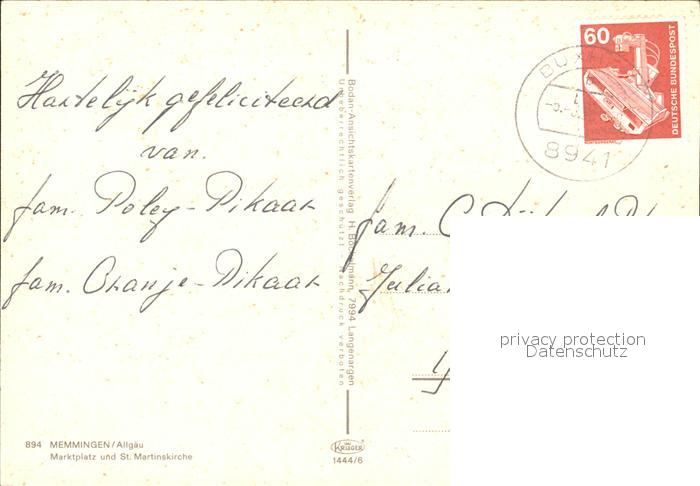 Hartelijk gefeliciteerd
van.
fam. Poley-Pikaar
fam. Oranje-Pikaar
894 MEMMINGEN/Allgäu
Marktplatz und St. Martinskirche
Bodan-Ansichtskartenverlag H. Bockelmann, 7994 Langenargen
Urheberrechtlich geschützt Nachdruck verboten
KRÜGER
1444/6
60
DEUTSCHE BUNDESPOST
8941
fam. C.
Julia
privacy protection
Datenschutz